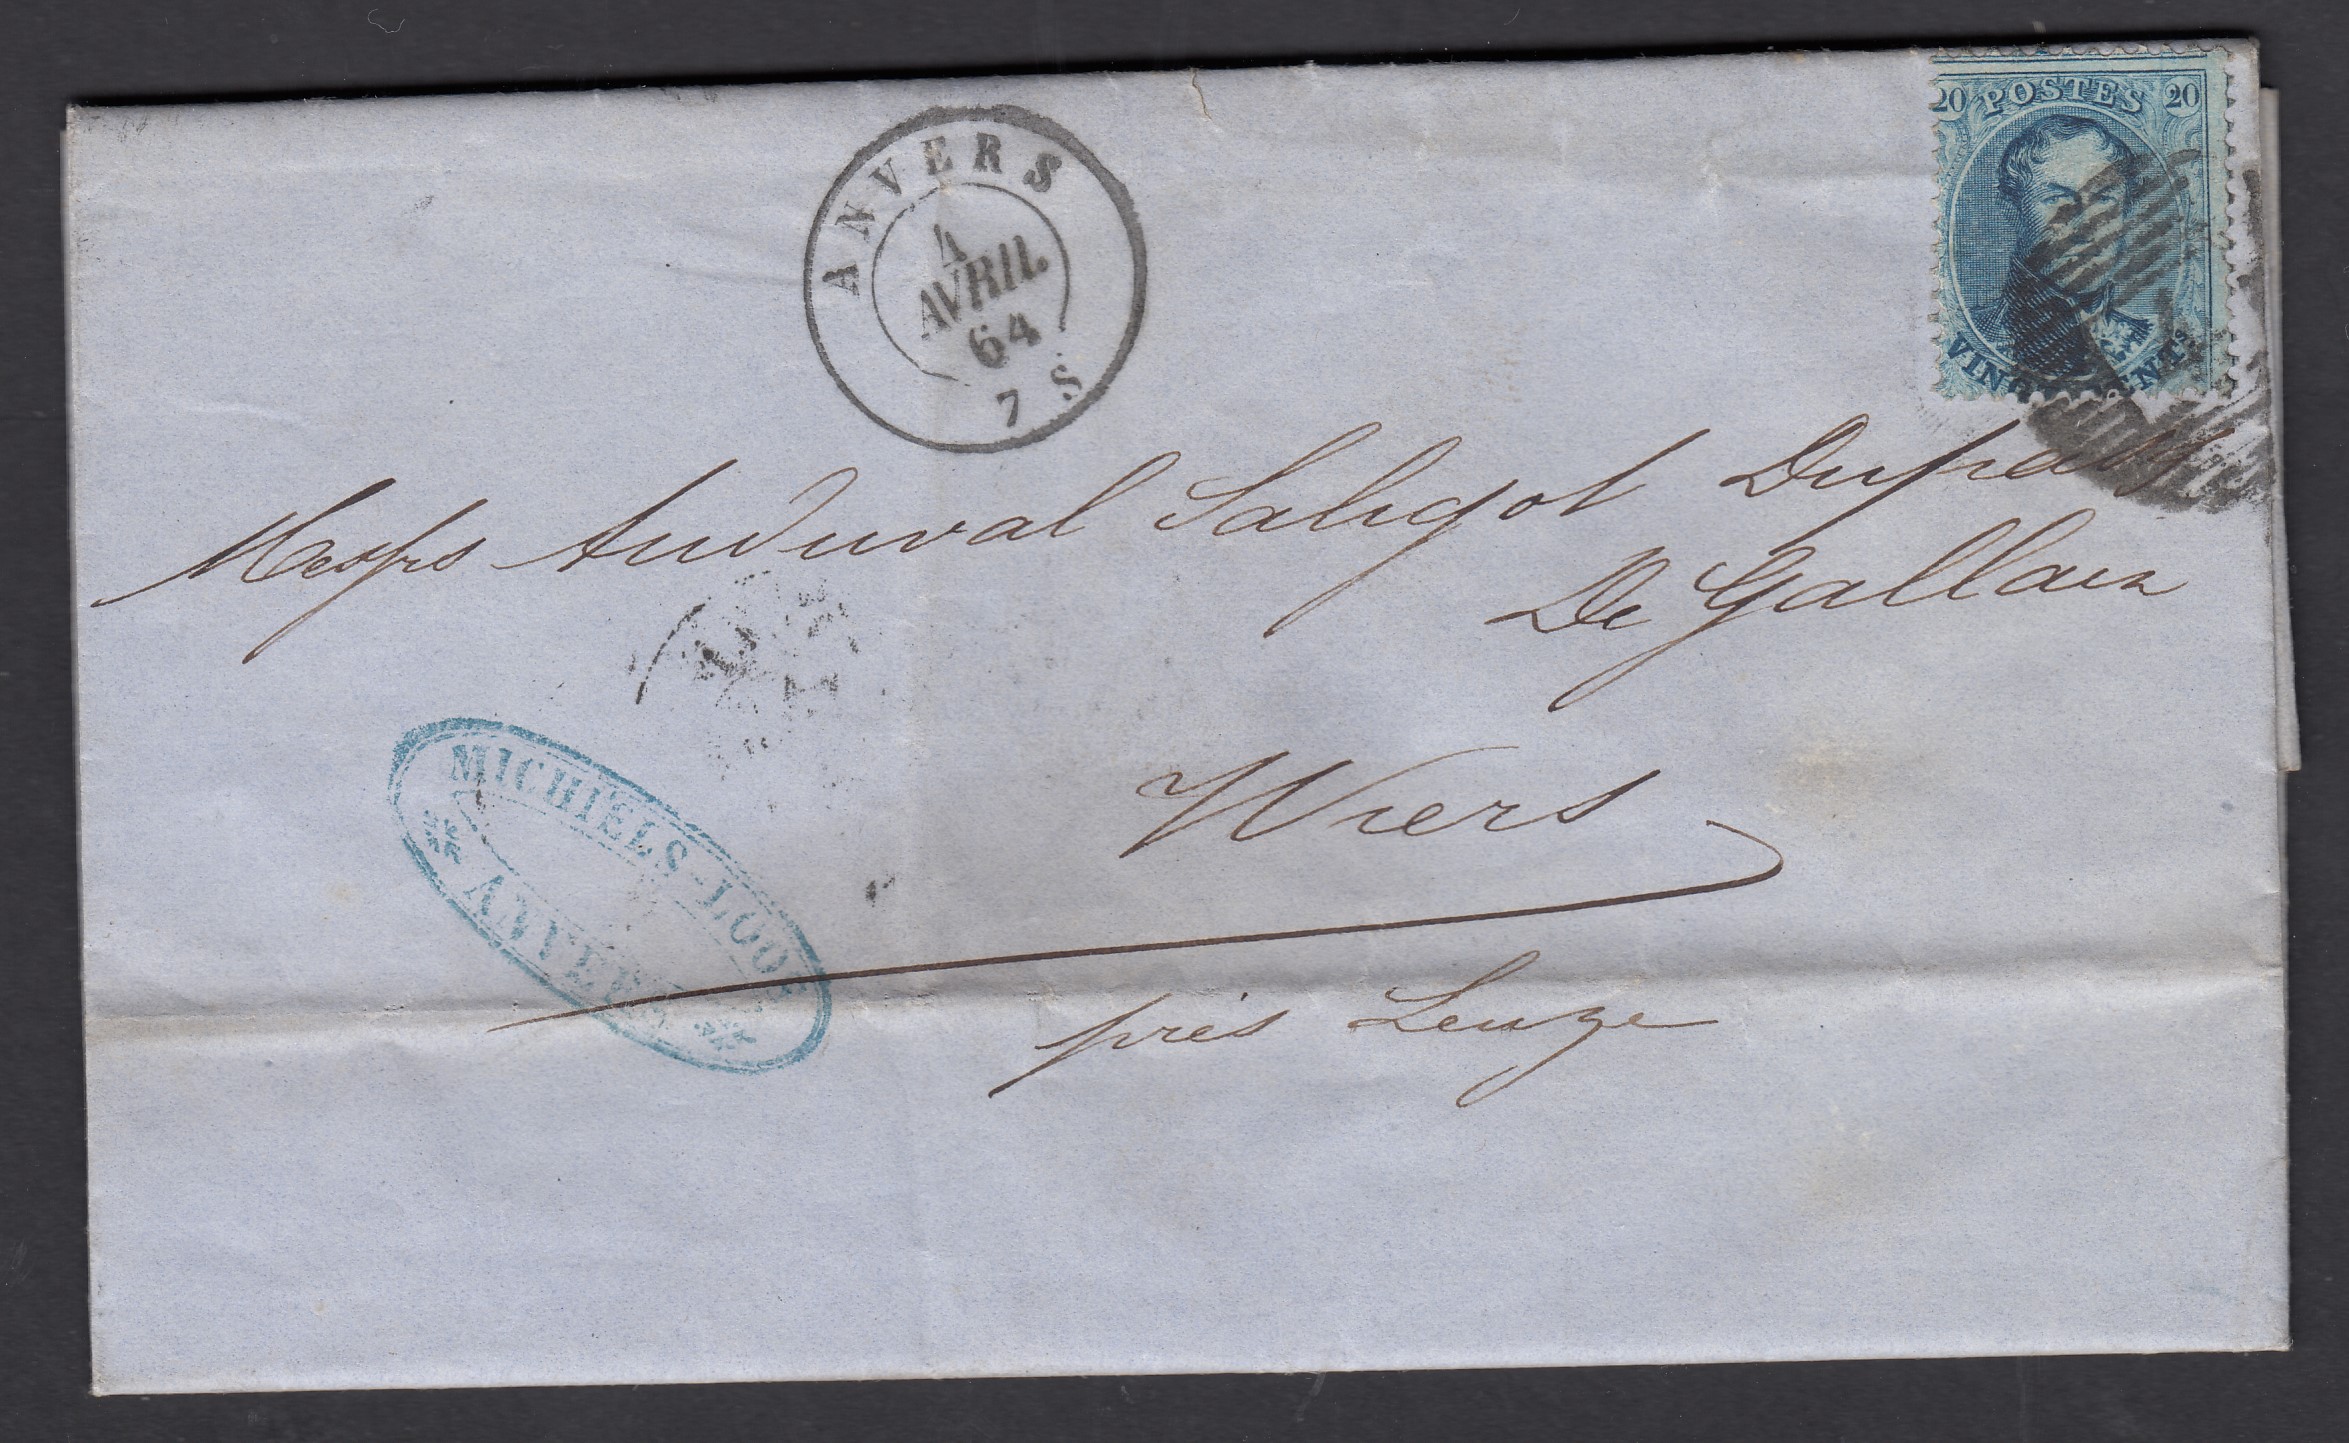 20 POSTES 20
VINGT CENTS
ANVERS
4
AVRIL
64
7 S
Messrs Auduval Saligot
De Gallaix
Wiers
près Leuze
MICHIELS-LOOS
ANVERS